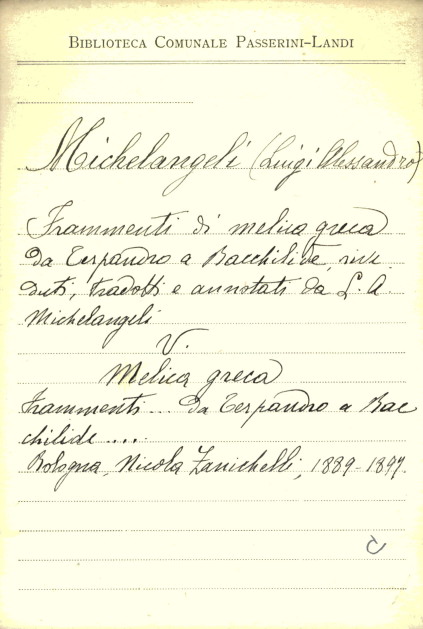 BIBLIOTECA COMUNALE PASSERINI-LANDI
Michelangeli (Luigi Alessandro)
Frammenti di melica greca
da Terpandro a Bacchilide, rive
duti, tradotti e annotati da L. A.
Michelangeli
V.
Melica greca
Frammenti... da Terpandro a Bac
chilide....
Bologna, Nicola Zanichelli, 1889-1897.